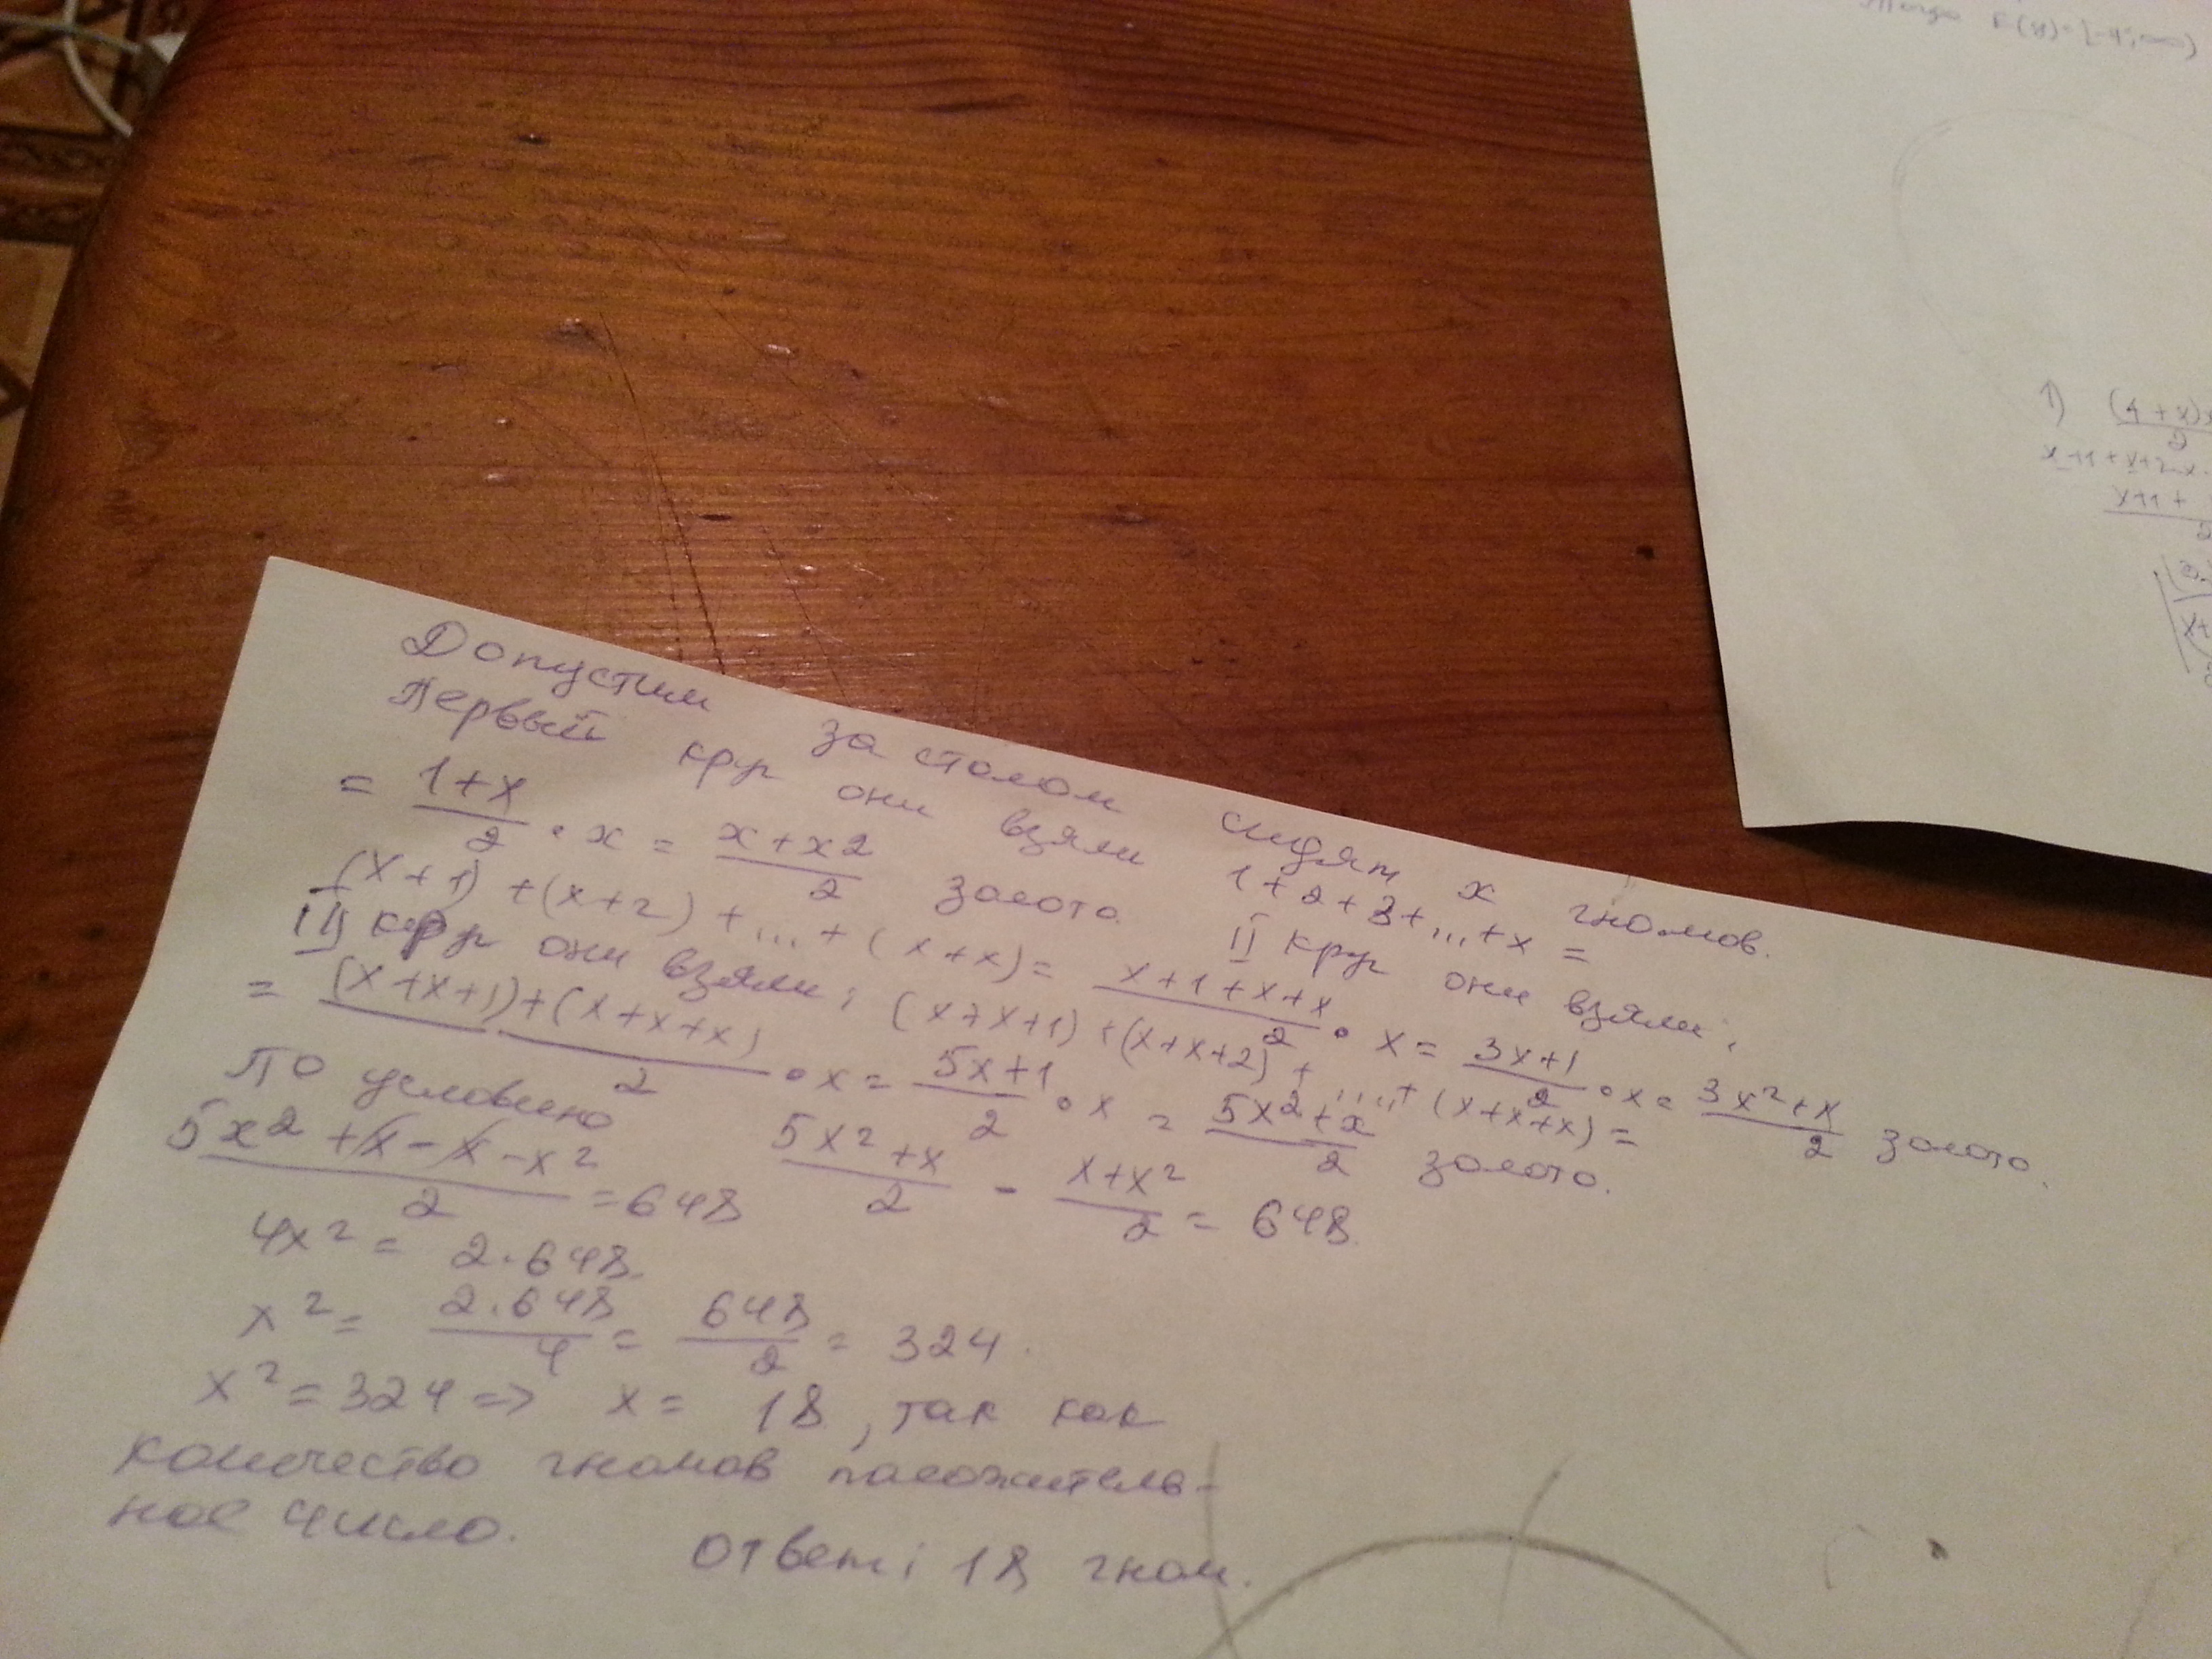 Допустим за столом сидят x гномов.
Первый круг они взяли 1+2+3+...+x =
= \frac{1+x}{2} · x = \frac{x+x2}{2} золота. II круг они взяли:
(x+1) + (x+2) + ... + (x+x) = \frac{x+1+x+x}{2} · x = \frac{3x+1}{2} · x = \frac{3x²+x}{2} золота.
III круг они взяли: (x+x+1) + (x+x+2) + ... + (x+x+x) =
= \frac{(x+x+1)+(x+x+x)}{2} · x = \frac{5x+1}{2} · x = \frac{5x²+x}{2} золота.
По условию \frac{5x²+x}{2} - \frac{x+x²}{2} = 648
\frac{5x²+x-x-x²}{2} = 648
4x² = 2·648
x² = \frac{2·648}{4} = \frac{648}{2} = 324.
x² = 324 => x = 18, так как
количество гномов положитель-
ное число.
Ответ: 18 гном.
E(y)=[-4;∞)
1) (1+x)x
2
x+1+x+2
x+1+
2